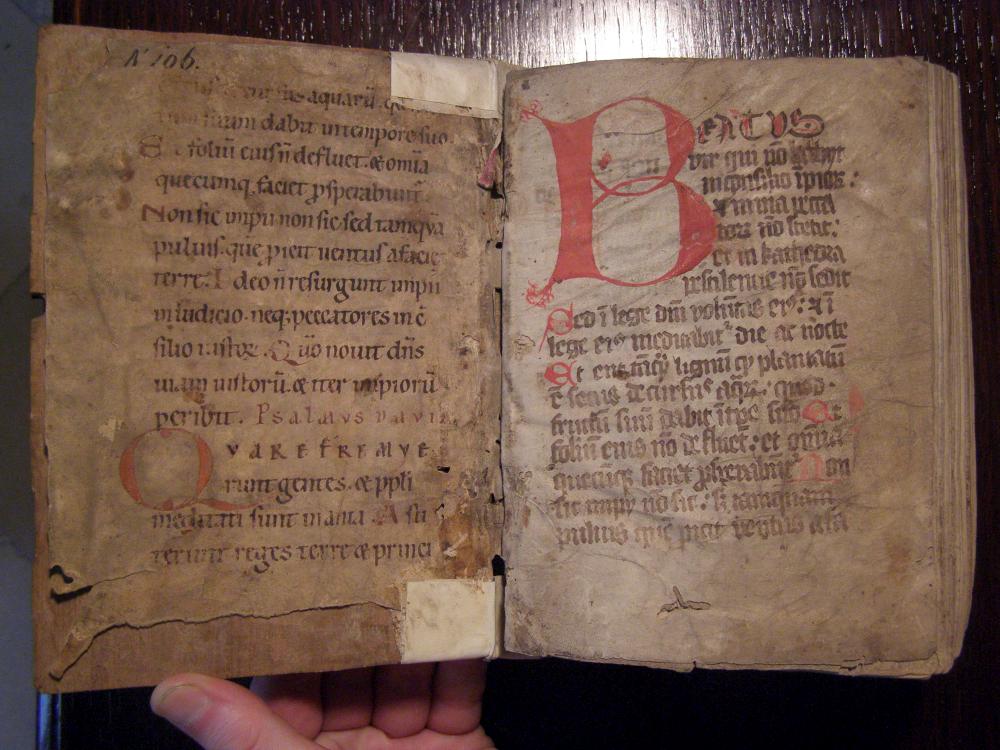 N 106.
aquarū
suum dabit in tempore suo.
Et foliū eius ñ defluet. & om̄ia
quecumq. faciet psperabunt̄.
Non sic impii non sic sed tamquā
puluis. que p̄icit uentus a facie
terre. I deo ñ resurgunt impii
in iudicio. neq; peccatores in c̄
silio iustoꝝ. Quō nouit dn̄s
uiam iustorū. & iter impiorū
peribit. PsalmVs DaVid
QVARE FREMVE
runt gentes. & ppli
meditati sunt inania. Asti
terunt reges terre & princi
BEATVS
vir qui nō
in consilio ipioꝝ:
et in via pecca
torꝝ nō stetit:
et in kathedra
pestilencie nō sedit
Sed ī lege dn̄i volūtas eiꝰ: et ī
lege eiꝰ meditabitᷣ die ac nocte
Et erit tāqᷓ lignū qᷓ plantatū
ē secus decursꝰ aqꝝ: quod
fructū suū dabit ī tꝑe suo Et
foliū eius nō defluet: et om̄ia
quecūqꝫ faciet ꝓsperabūtᷣ Non
sic impii nō sic: sꝫ tamquam
puluis quē ꝓicit ventus a fa